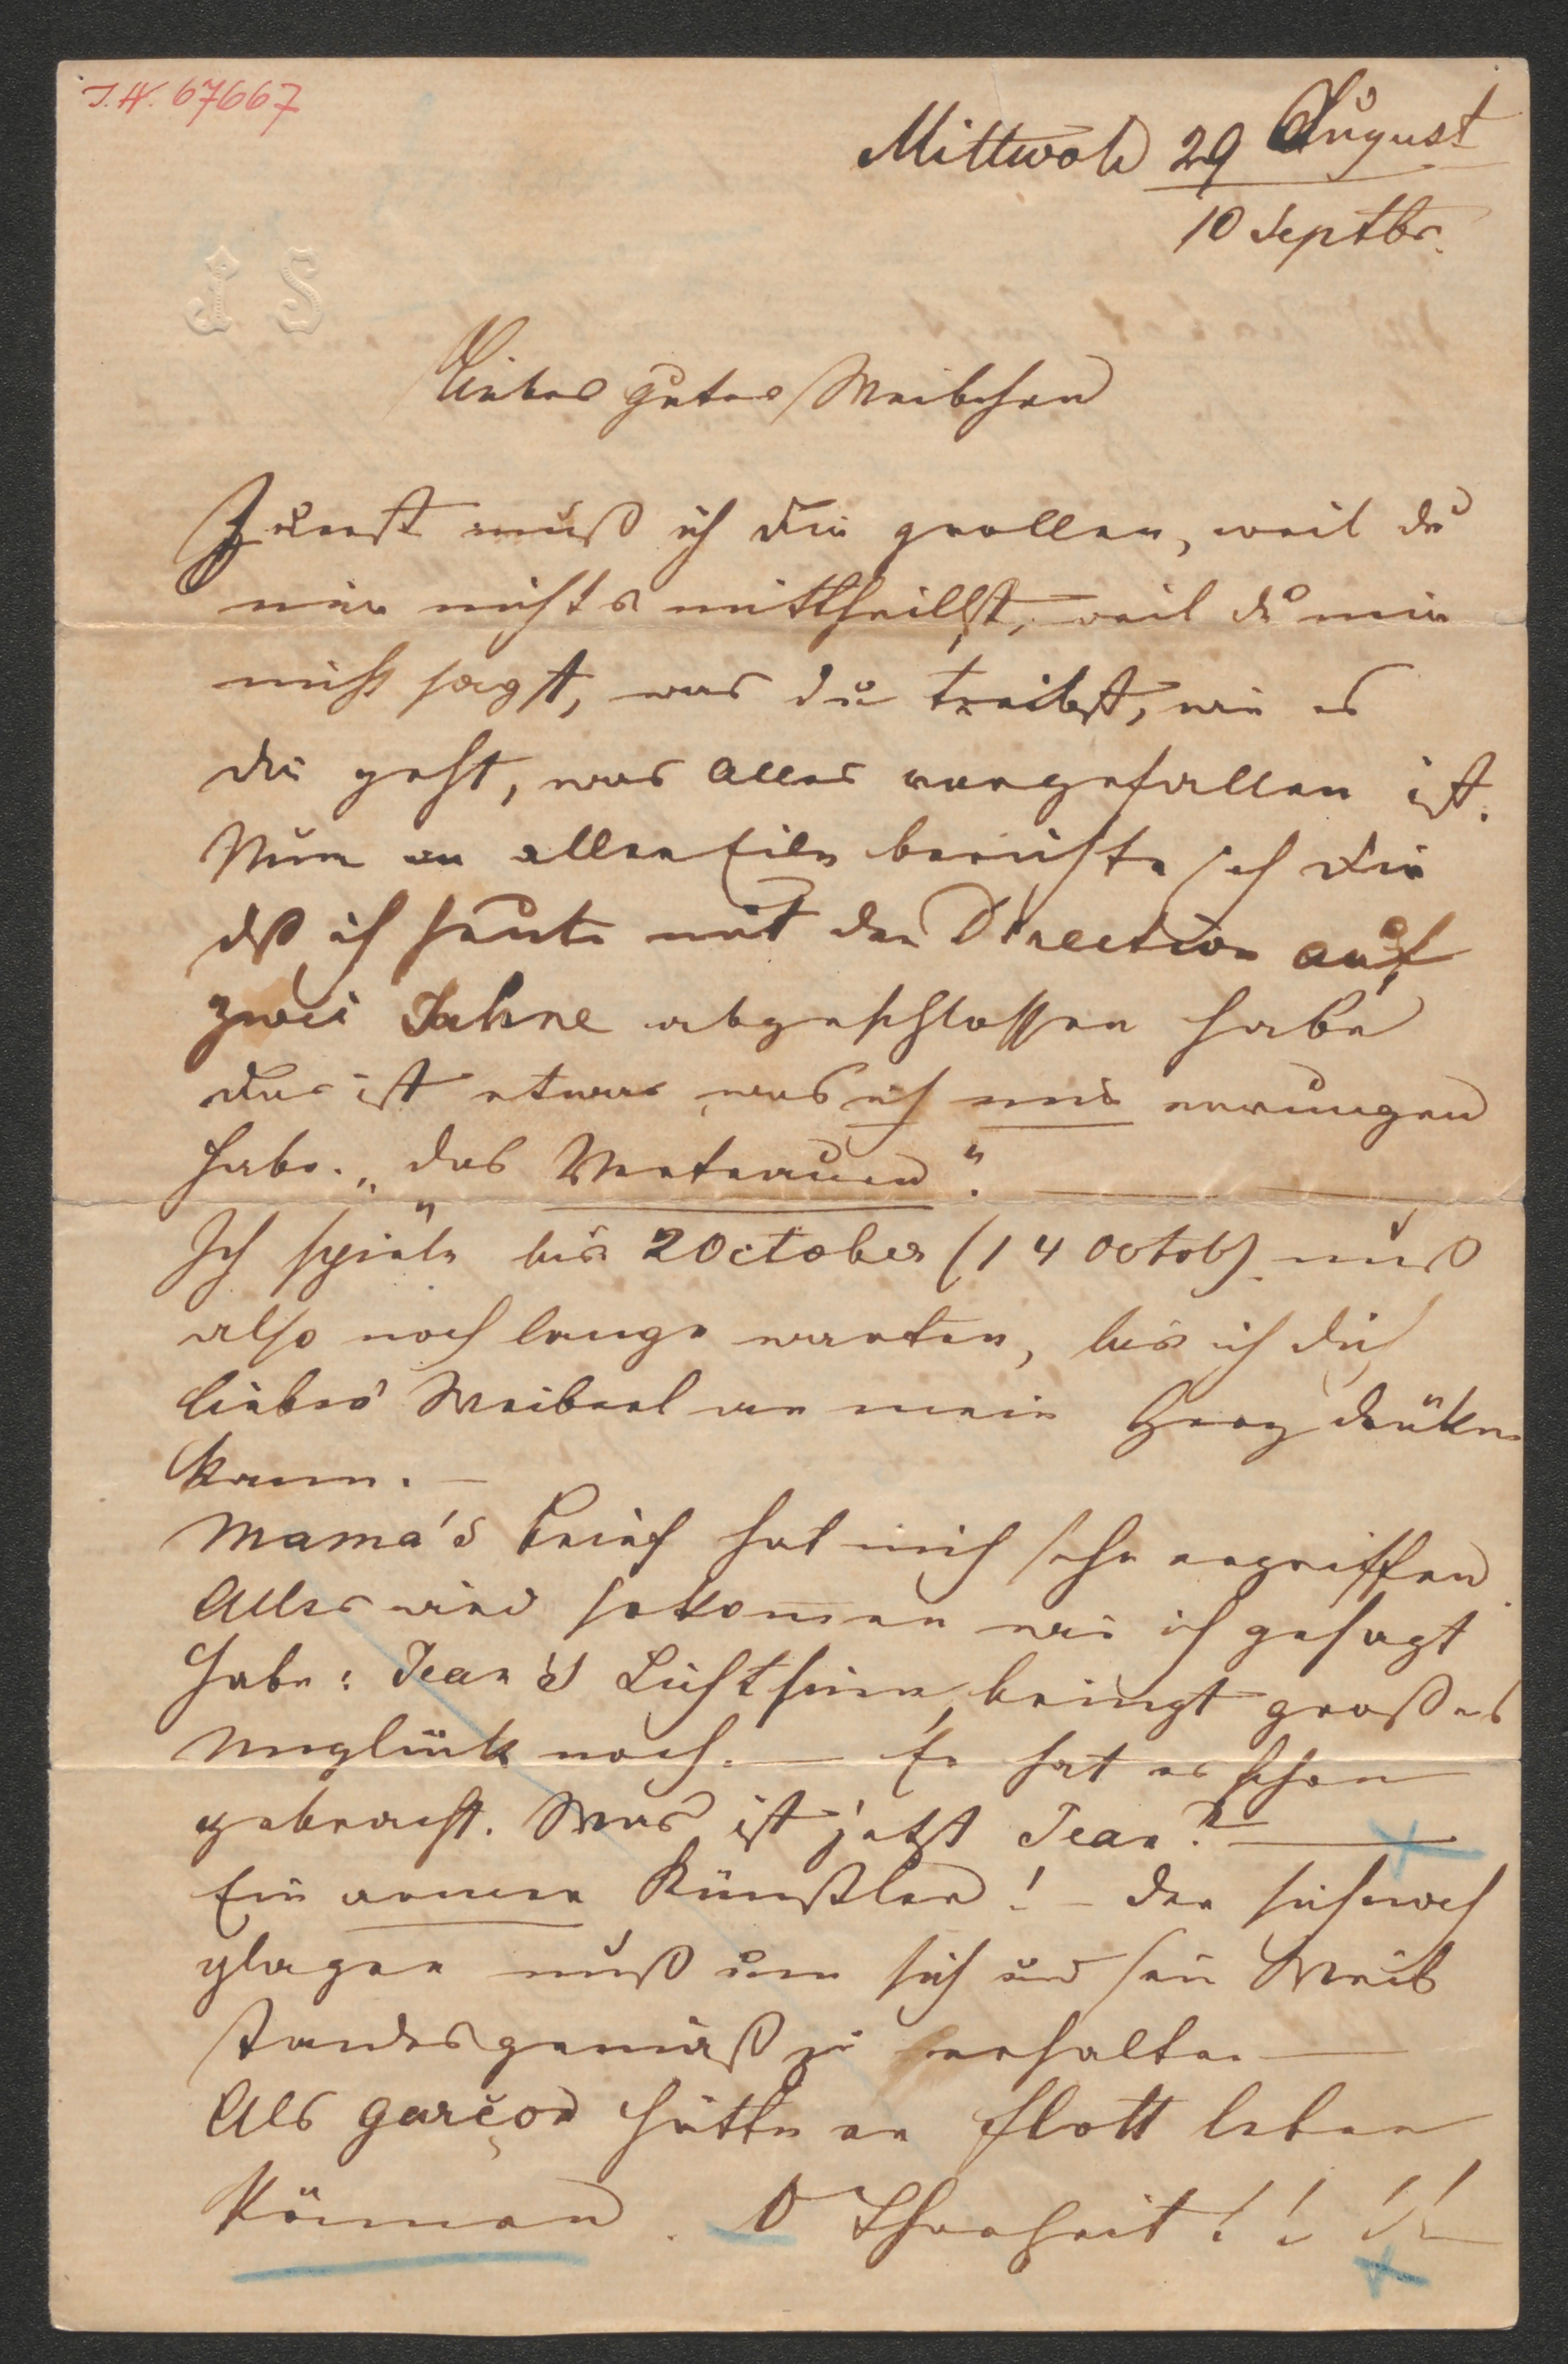 J.N. 67667
Mittwoch 29 August
10 Septbr.
J S
Liebes gutes Weibchen
Zuerst muß ich dir grollen, weil du
mir nichts mittheillst, weil du mir
nicht sagst, was du treibst, wie es
dir geht, was alles vorgefallen ist.
Nun in aller Eile berichte ich dir
dß ich heute mit der Direction auf
zwei Jahre abgeschlossen habe
das ist etwas was ich mir errungen
habe. „das Vertrauen“.
Ich spiele bis 2 October (14 Octob) muß
also noch lange warten, bis ich dich
liebes Weiberl an mein Herz drüken
kann. —
Mama's Brief hat mich sehr ergriffen
Alles wird so kommen wie ich gesagt
habe: Jean's Leichtsinn bringt großes
Unglück noch. — Er hat es schon
gebracht. Was ist jetzt Jean? —
Ein armer Künstler! — der sich noch
plagen muß um sich und sein Weib
standesgemäß zu erhalten —
Als garçon hätte er flott leben
können. O Thorheit!!!! —